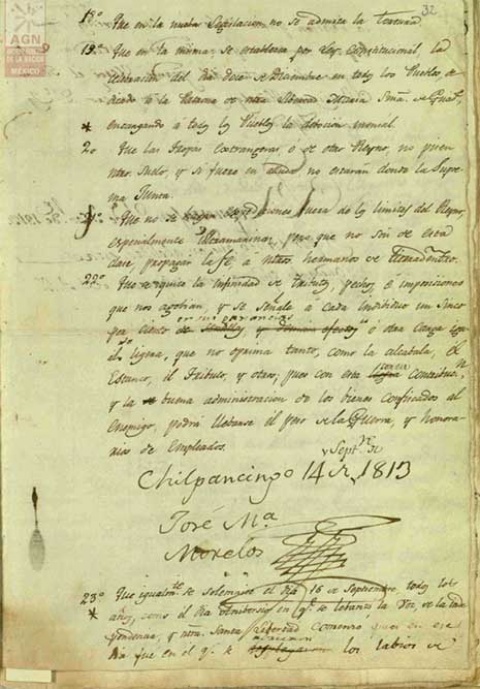 AGN
MÉXICO
32
18º Que en la nueva Legislacion no se admita la Tortura
19º Que en la misma se establesca por Ley Constitucional la
celebracion del dia doce de Diciembre en todos los Pueblos, de
dicado a la Patrona de ntra Libertad Maria Sma. de Guadª,
encargando a todos los Pueblos la debocion mensal.
*
2. Que las Tropas Extrangeras ó de otro Reyno, no pisen
ntro. Suelo, y si fuere en aiuda no estarán donde la Supre
ma Junta.
21. Que no se hagan expediciones fuera de los limites del Reyno
especialmente Ultramarinas, pero que no son de esta
clase, propagar la fé a ntros hermanos de tierradentro.
22º Que se quite la infinidad de tributos, pechos e imposiciones
que nos agobian, y se señale a cada Individuo un cinco
en sus ganancias
por ciento de u otra carga igual
ligera, que no oprima tanto, como la alcabala, el
Estanco, el Tributo, y otros, pues con esta contribucn
y la buena administracion de los bienes confiscados al
enemigo, podrá llebarse el peso de la Guerra, y honora
rios de empleados.
Sept.
Chilpancingo 14 de 1813
José Mª
Morelos
23º Que igualmte se solemnise el dia 16 de Septiembre todos los
*
años, como el dia Anibersario en q. se lebantó la Voz de la Inde
pendencia, y ntra Santa Libertad comenzó, pues en ese
dia fue en el q. se los labios de